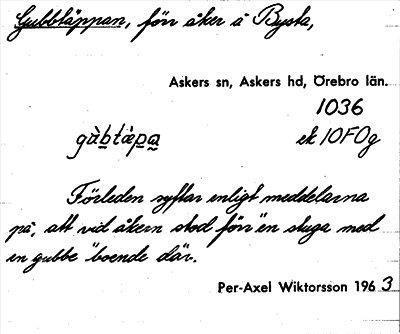 Gubbtäppan, förr åker å Bysta,
Askers sn, Askers hd, Örebro län.
1036
gùb̲tä̀pa̲ ek 10F0g
Förleden syftar enligt meddelarna
på, att vid åkern stod förr "en stuga med
en gubbe" boende där.
Per-Axel Wiktorsson 1963